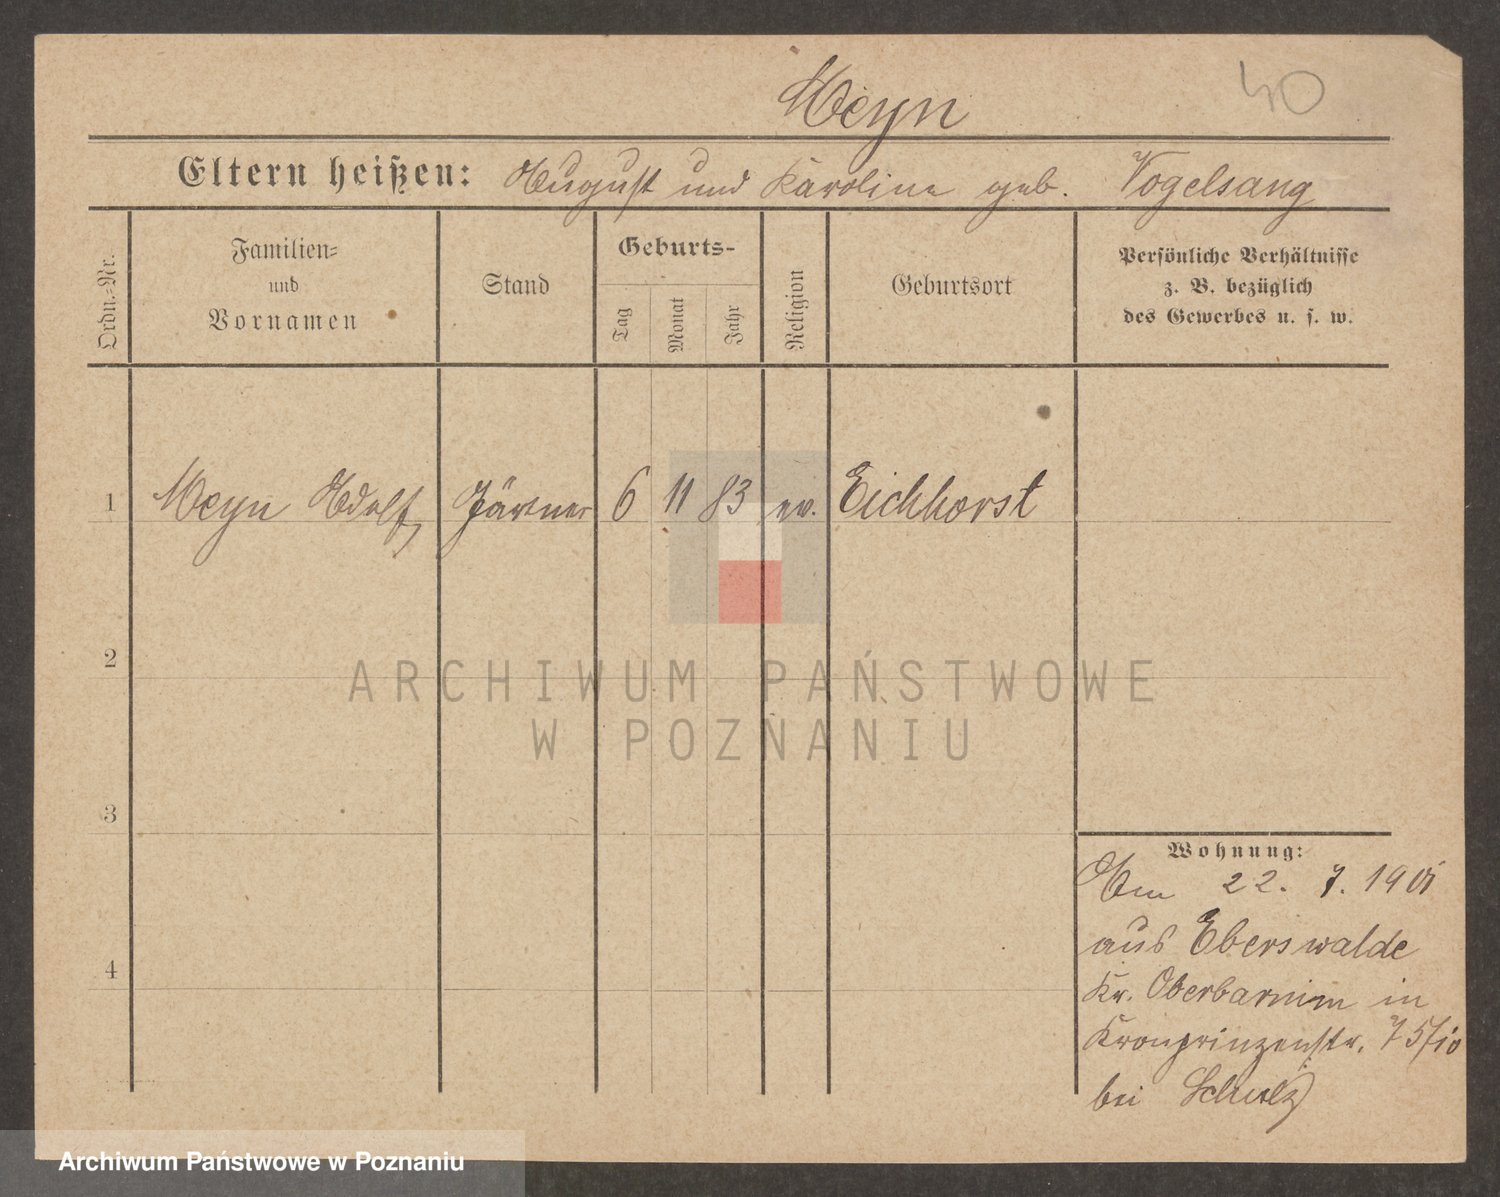 Meyn
40
Eltern heißen: August und Karoline geb. Vogelsang
Ordn.=Nr.
Familien=
und
Vornamen
Stand
Geburts-
Tag
Monat
Jahr
Religion
Geburtsort
Persönliche Verhältnisse
z. B. bezüglich
des Gewerbes u. s. w.
1 Meyn Adolf, Gärtner 6 11 83 ev. Eichhorst
2
ARCHIWUM PAŃSTWOWE
W POZNANIU
3
Wohnung:
Am 22. 7. 1901
aus Eberswalde
4
Kr. Oberbarnim in
Kronprinzenstr. 75/10
bei Schulz
Archiwum Państwowe w Poznaniu